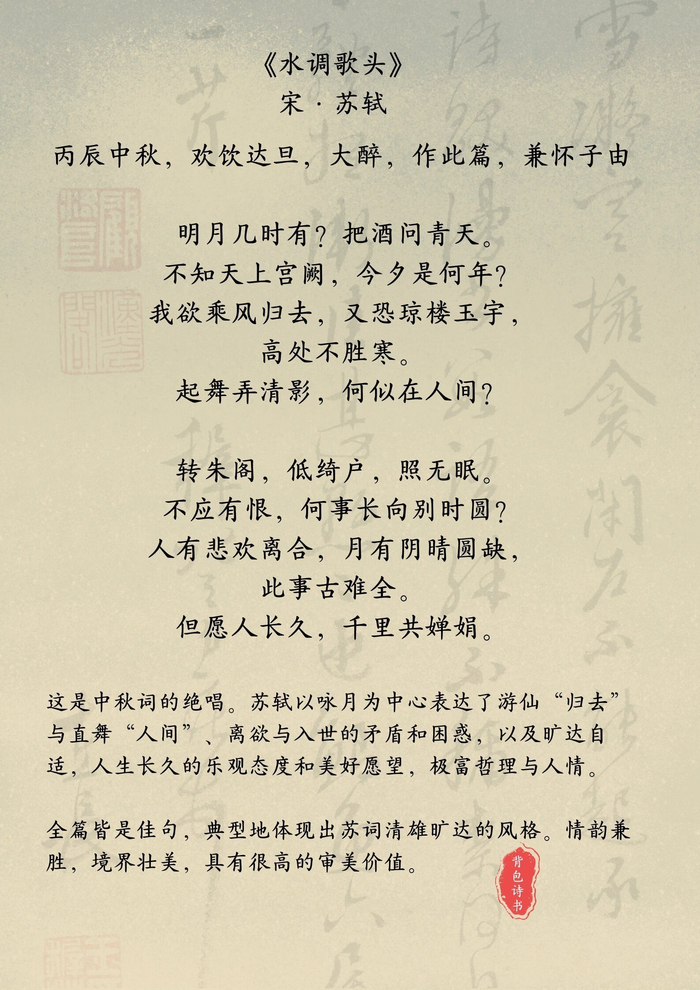 《水调歌头》
宋·苏轼
丙辰中秋，欢饮达旦，大醉，作此篇，兼怀子由
明月几时有？把酒问青天。
不知天上宫阙，今夕是何年？
我欲乘风归去，又恐琼楼玉宇，
高处不胜寒。
起舞弄清影，何似在人间？
转朱阁，低绮户，照无眠。
不应有恨，何事长向别时圆？
人有悲欢离合，月有阴晴圆缺，
此事古难全。
但愿人长久，千里共婵娟。
这是中秋词的绝唱。苏轼以咏月为中心表达了游仙“归去”
与直舞“人间”、离欲与入世的矛盾和困惑，以及旷达自
适，人生长久的乐观态度和美好愿望，极富哲理与人情。
全篇皆是佳句，典型地体现出苏词清雄旷达的风格。情韵兼
胜，境界壮美，具有很高的审美价值。
背包诗书